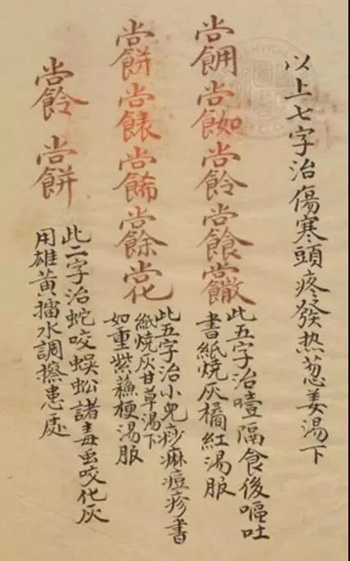 以上七字治傷寒頭疼發热葱姜湯下
此五字治噎隔食後嘔吐
書紙燒灰橘紅湯服
此五字治小兒痧麻痘疹書
紙燒灰甘草湯下
如重紫蘓梗湯服
此二字治蛇咬蜈蚣諸毒虫咬化灰
用雄黃擂水調擦患處